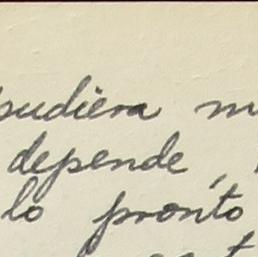 pudiera
depende,
lo pronto